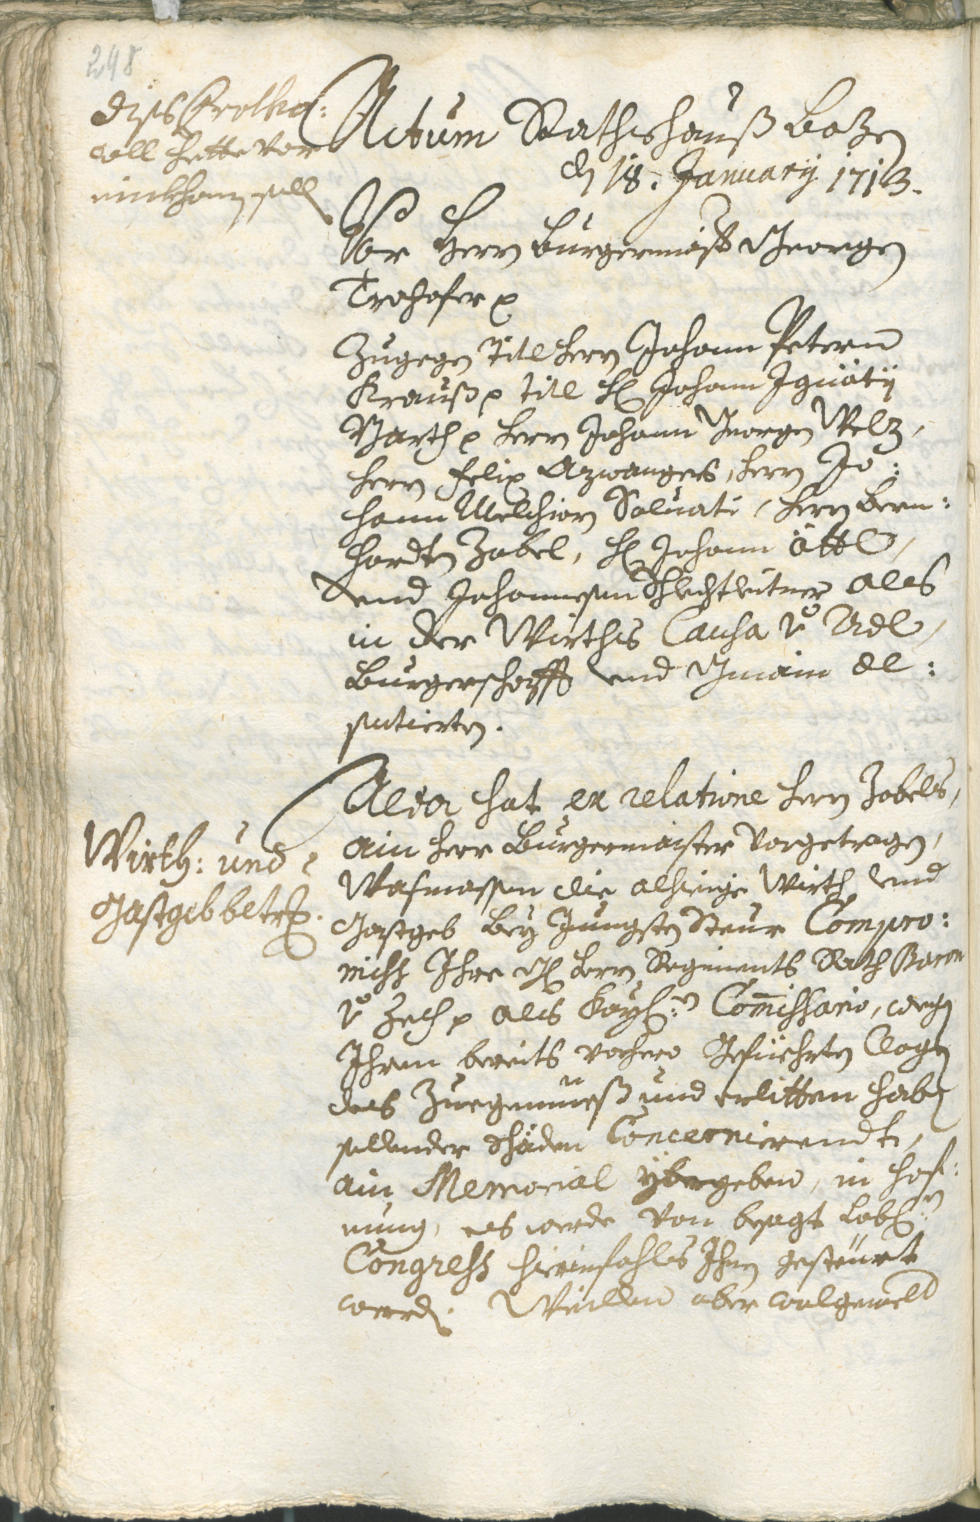 248
Dises Protho:
coll hette vor
einkhomen sollen
Actum Rathshauß Bozen
den 18. January 1713.
Vor Herrn Burgermaister Georgen
Trohofer p
Zugegen Titl Herrn Johann Petern
Krauß p Titl H. Johann Ignatij
Barth p Herrn Johann Georgen Welz,
Herrn Felix Azwangers, Herrn Jo:
hann Melchiorn Saluati, Herrn Bern:
hardten Zobel, H. Johann Öttl,
und Johannesen Schlechtleitner als
in der Wirths Causa v. Adl,
Burgerschafft und Gmain de:
putierten.
Alda hat ex relatione Herrn Zobels,
ain Herr Burgermaister vorgetragen,
Wasmassen die alhieige Wirth und
Wirth: und
Gastgeb betr.
Gastgeb bey Jungsten Steur Compro:
miss Ihro G. Herrn Regiments Rath Baron
v. Zech p als Kayl. Commissario, wegen
Ihrem bereits vorhero gefüehrten Clagen
des Zuegemüeß und erlitten haben
sollender Schäden Concernierendte,
ain Memorial ybergeben, in Hof:
nung, es werde von besagt Lobl.
Congress hierinfahls Ihnen gesteurt
werden. Weillen aber wolgemelt